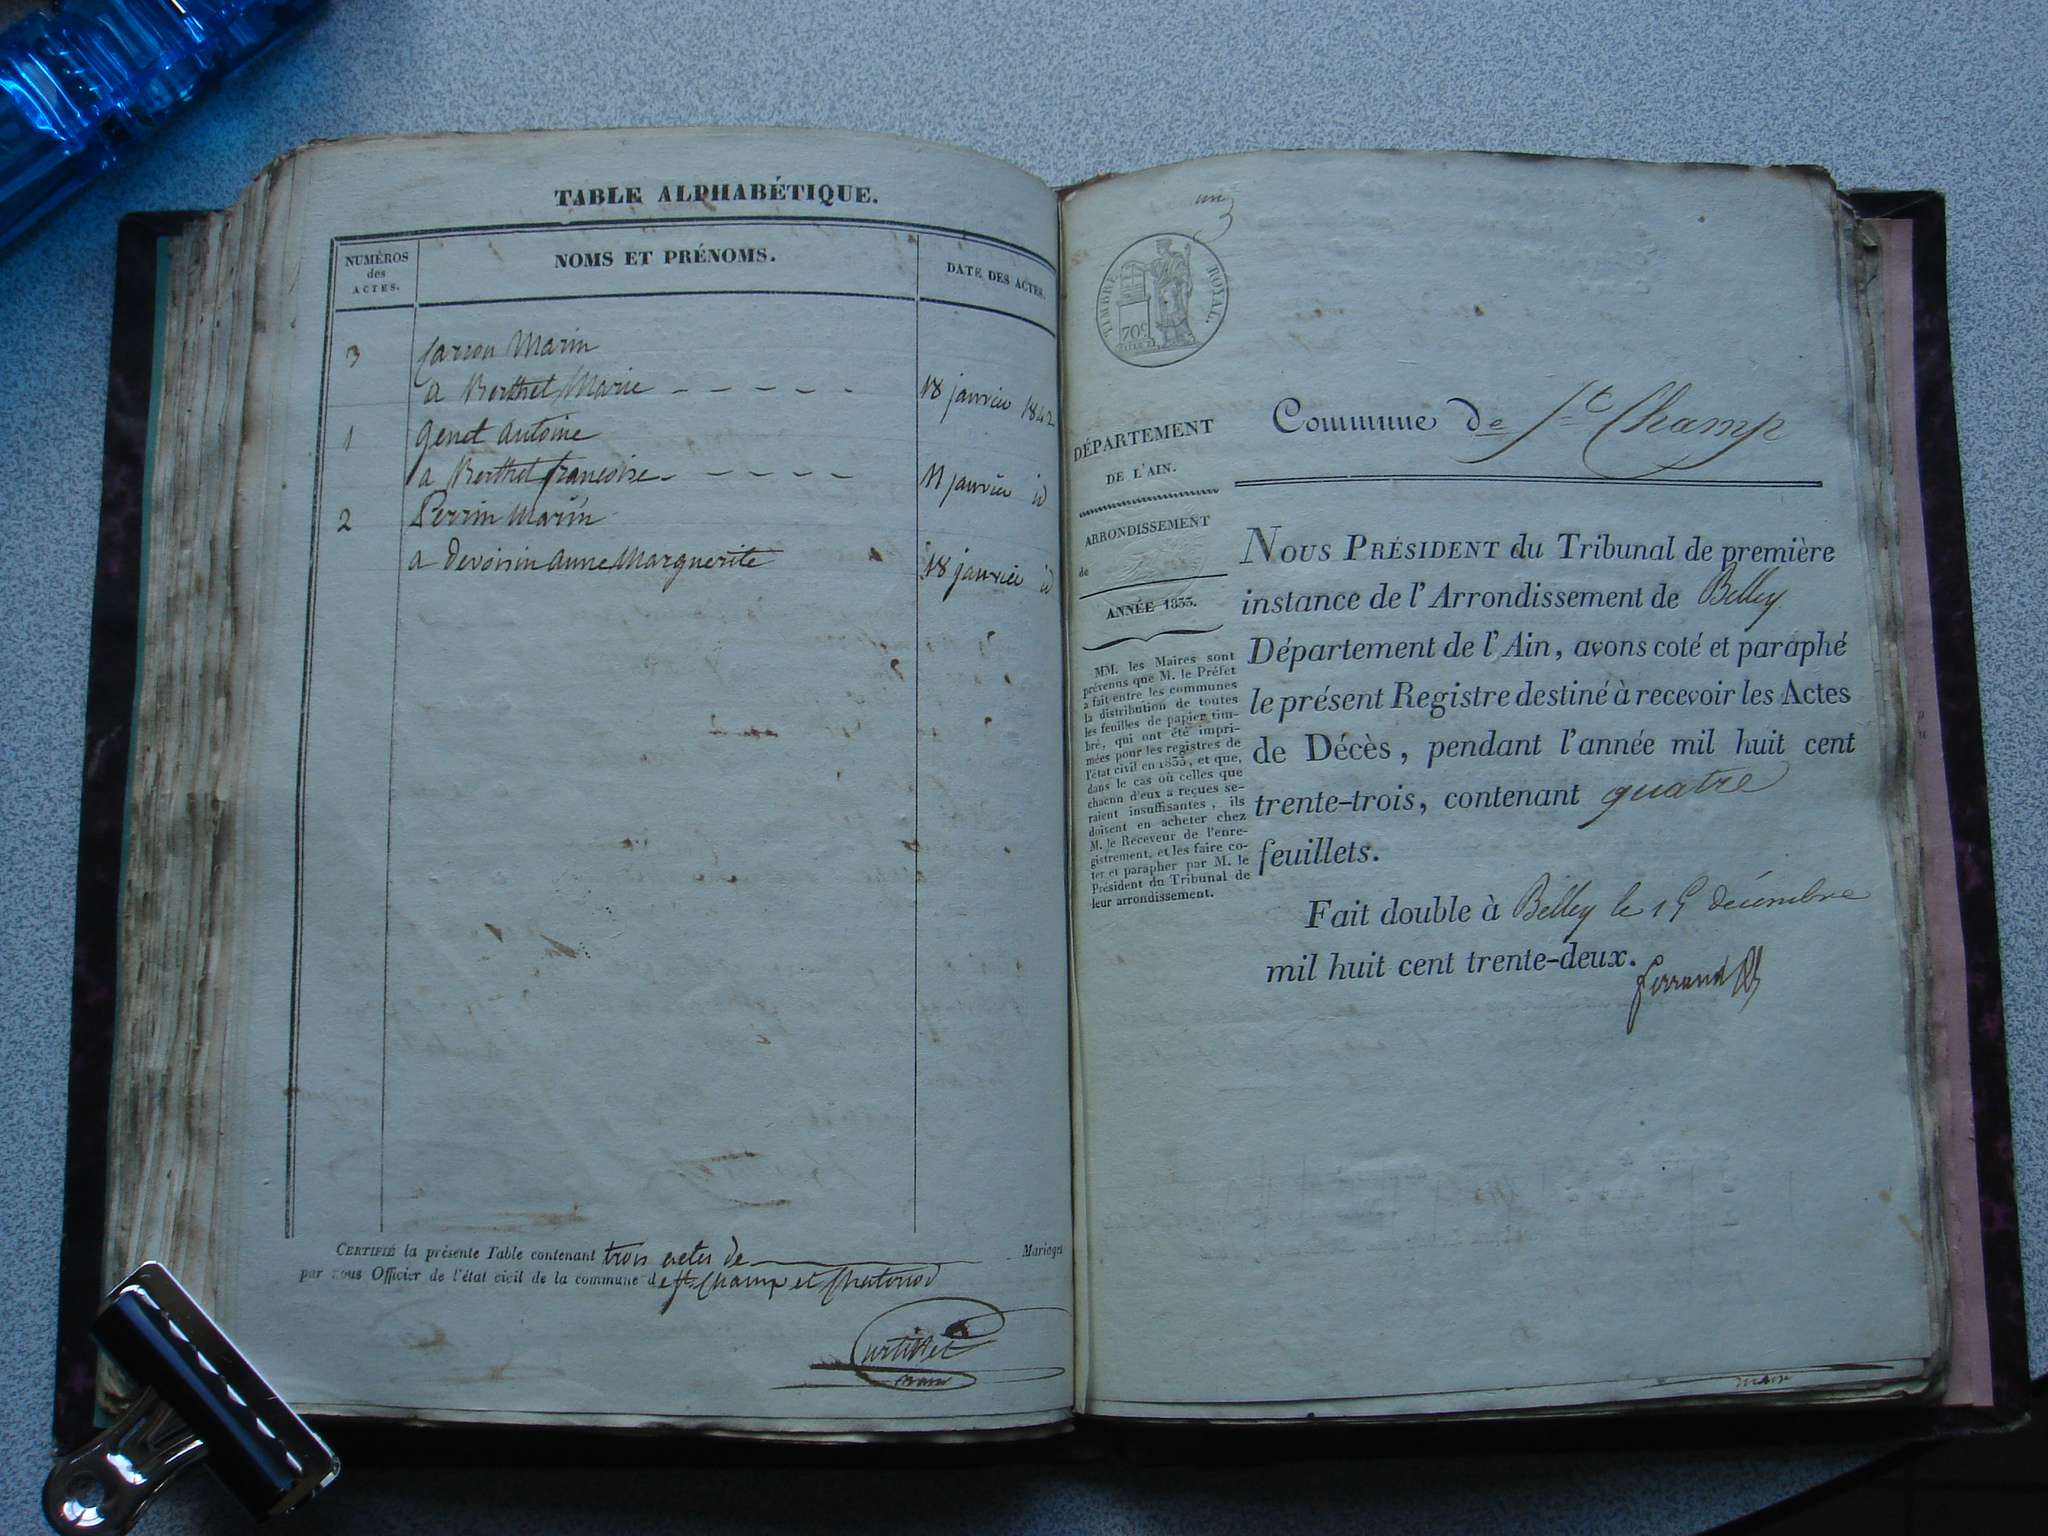 TABLE ALPHABÉTIQUE.
NUMÉROS
des
ACTES.
NOMS ET PRÉNOMS.
DATE DES ACTES.
3 Carron Marin
a Berthet Marie - - - - - 18 janvier 1842
1 Genet Antoine
a Berthet françoise - - - - - 11 janvier id
2 Perrin Marin
a Devoisin Anne Marguerite 18 janvier id
CERTIFIÉ la présente Table contenant trois actes de Mariages
par nous Officier de l'état civil de la commune de St Champ et Chatonod
maire
un
TIMBRE ROYAL.
70c
DÉPARTEMENT
DE L'AIN.
ARRONDISSEMENT
de
ANNÉE 1833.
MM. les Maires sont
prévenus que M. le Préfet
a fait entre les communes
la distribution de toutes
les feuilles de papier tim-
bré, qui ont été impri-
mées pour les registres de
l'état civil en 1833, et que,
dans le cas où celles que
chacun d'eux a reçues se-
raient insuffisantes, ils
doivent en acheter chez
M. le Receveur de l'enre-
gistrement, et les faire co-
ter et parapher par M. le
Président du Tribunal de
leur arrondissement.
Commune de St Champ
NOUS PRÉSIDENT du Tribunal de première
instance de l'Arrondissement de Belley
Département de l'Ain, avons coté et paraphé
le présent Registre destiné à recevoir les Actes
de Décès, pendant l'année mil huit cent
trente-trois, contenant quatre
feuillets.
Fait double à Belley le 15 décembre
mil huit cent trente-deux.
Ferrand
maire